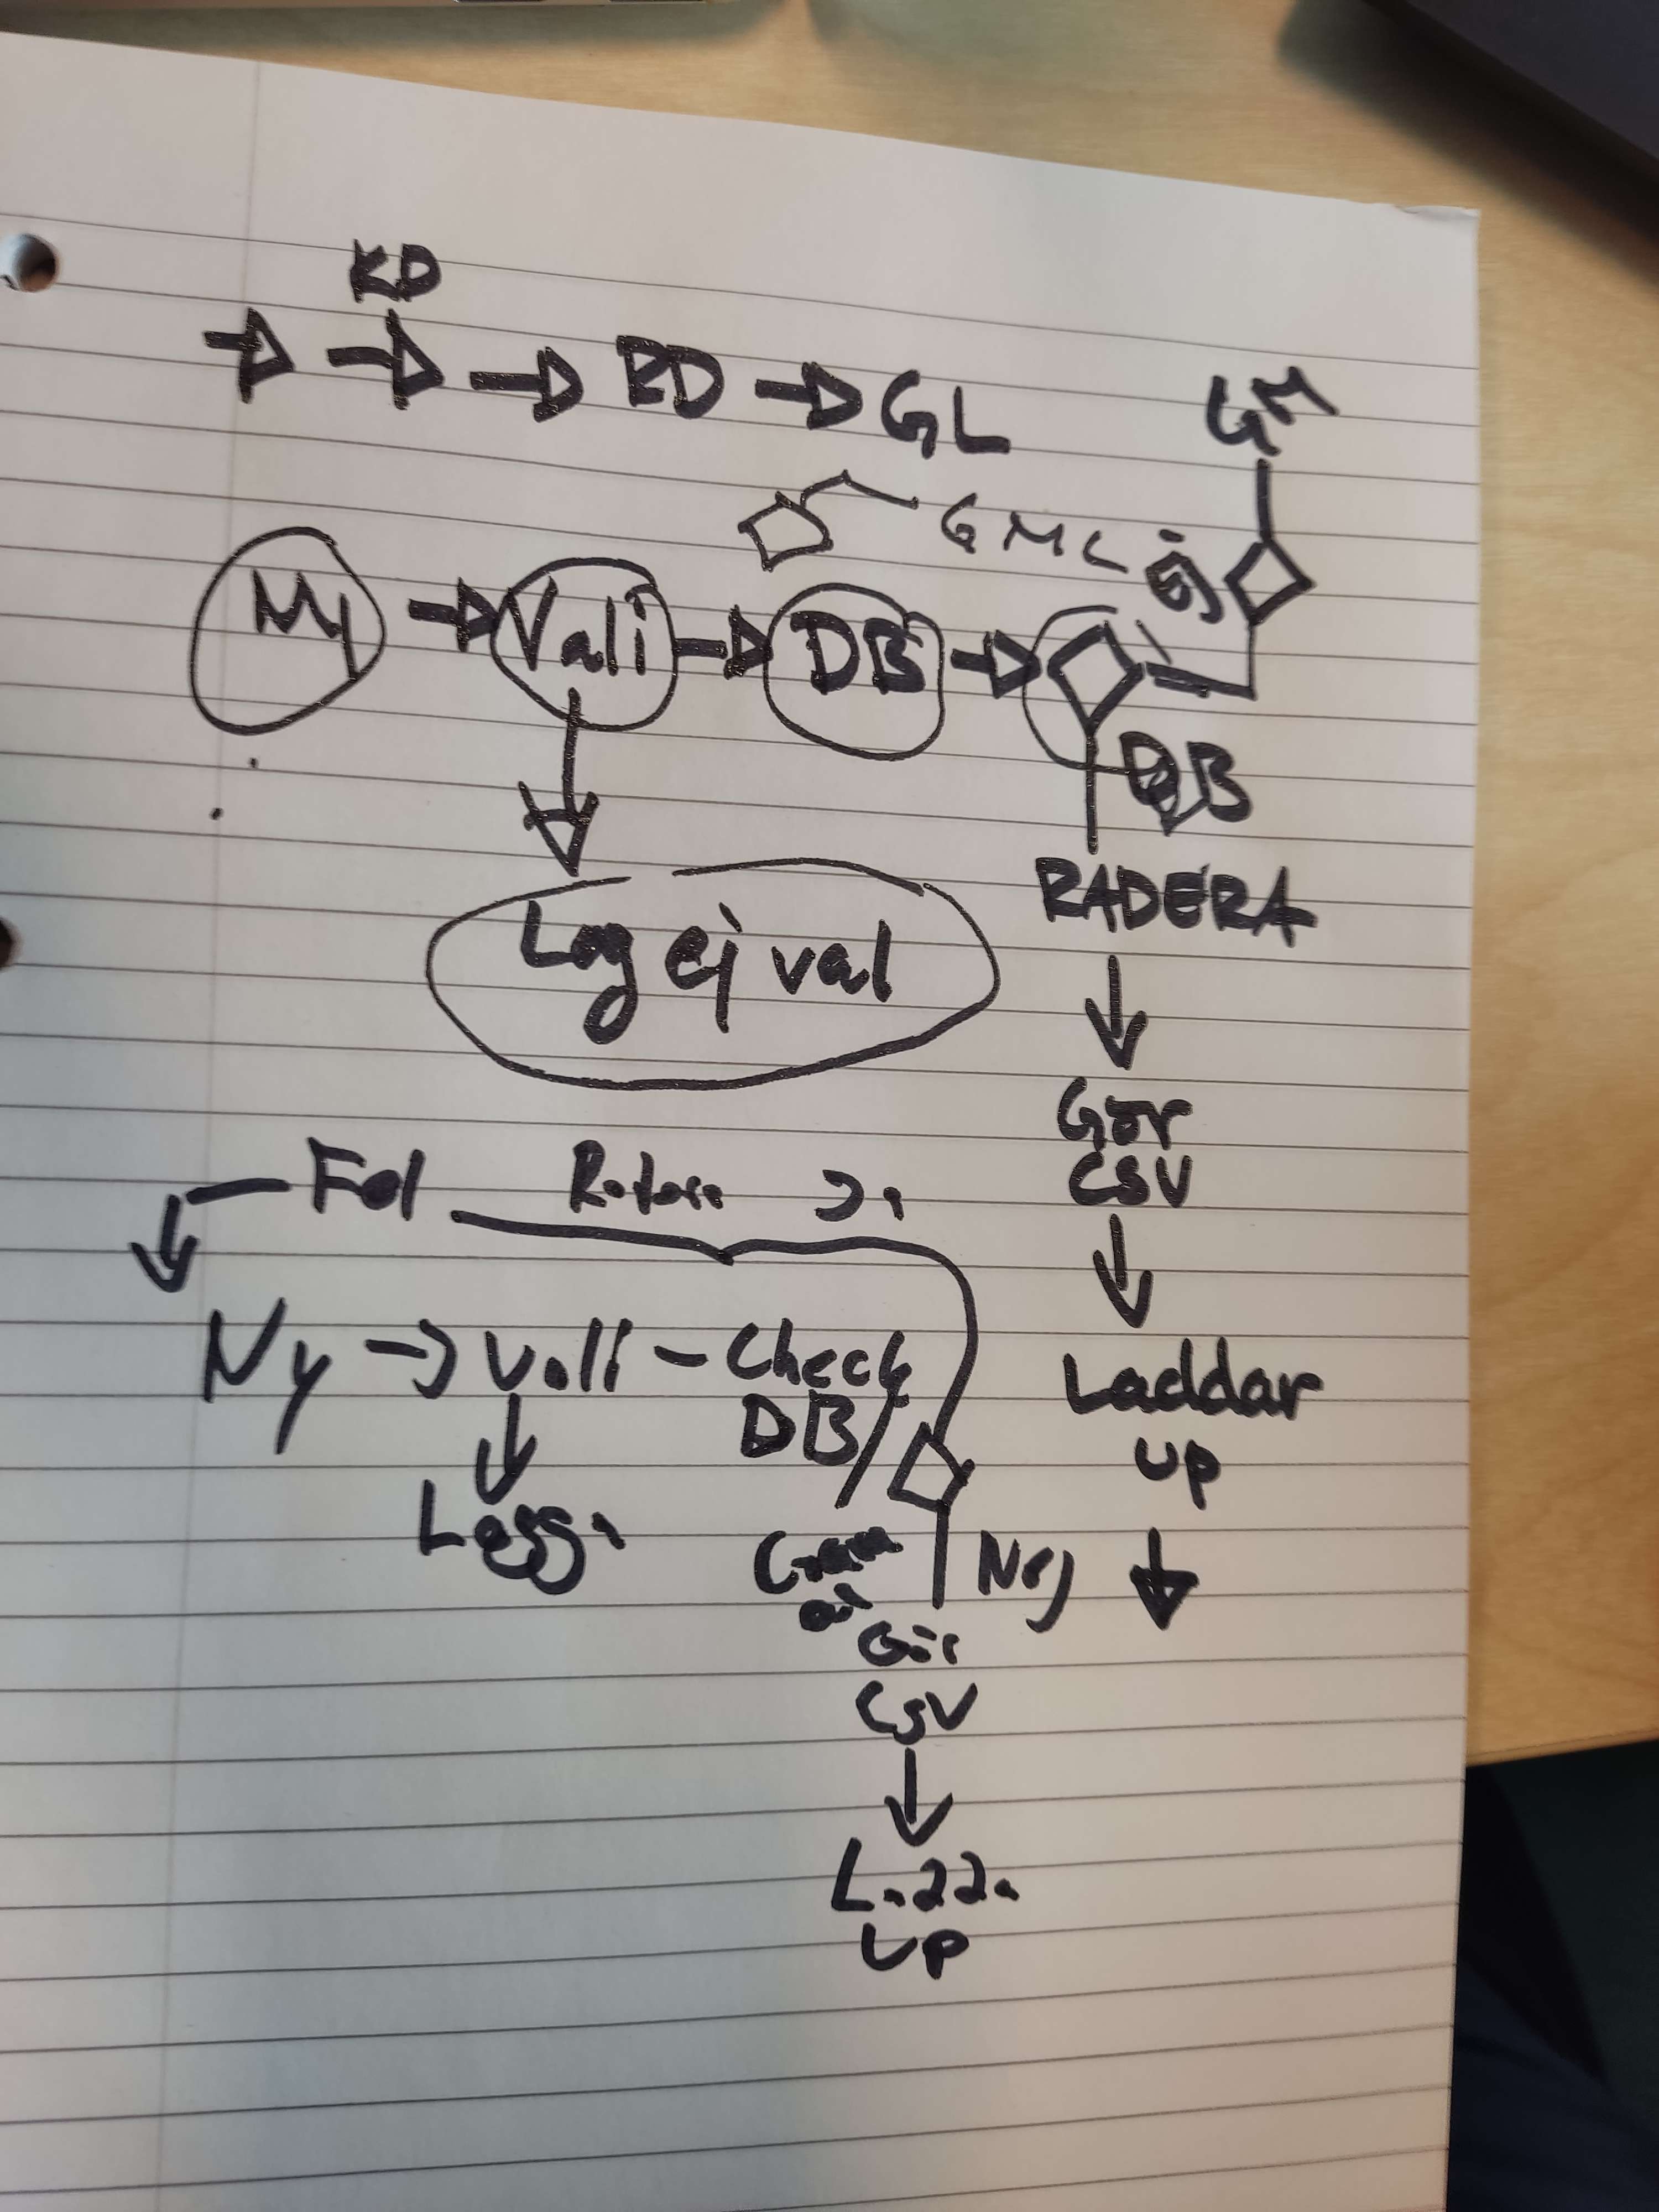 KD
RD GL
GM
GMC ej
Ny Vali DB
DB
RADERA
Log ej val
Gör
CSV
Fel Radera
Ny Vali - Check
DB
Laddar
UP
Logga
Nej
Gör
CSV
Ladda
UP